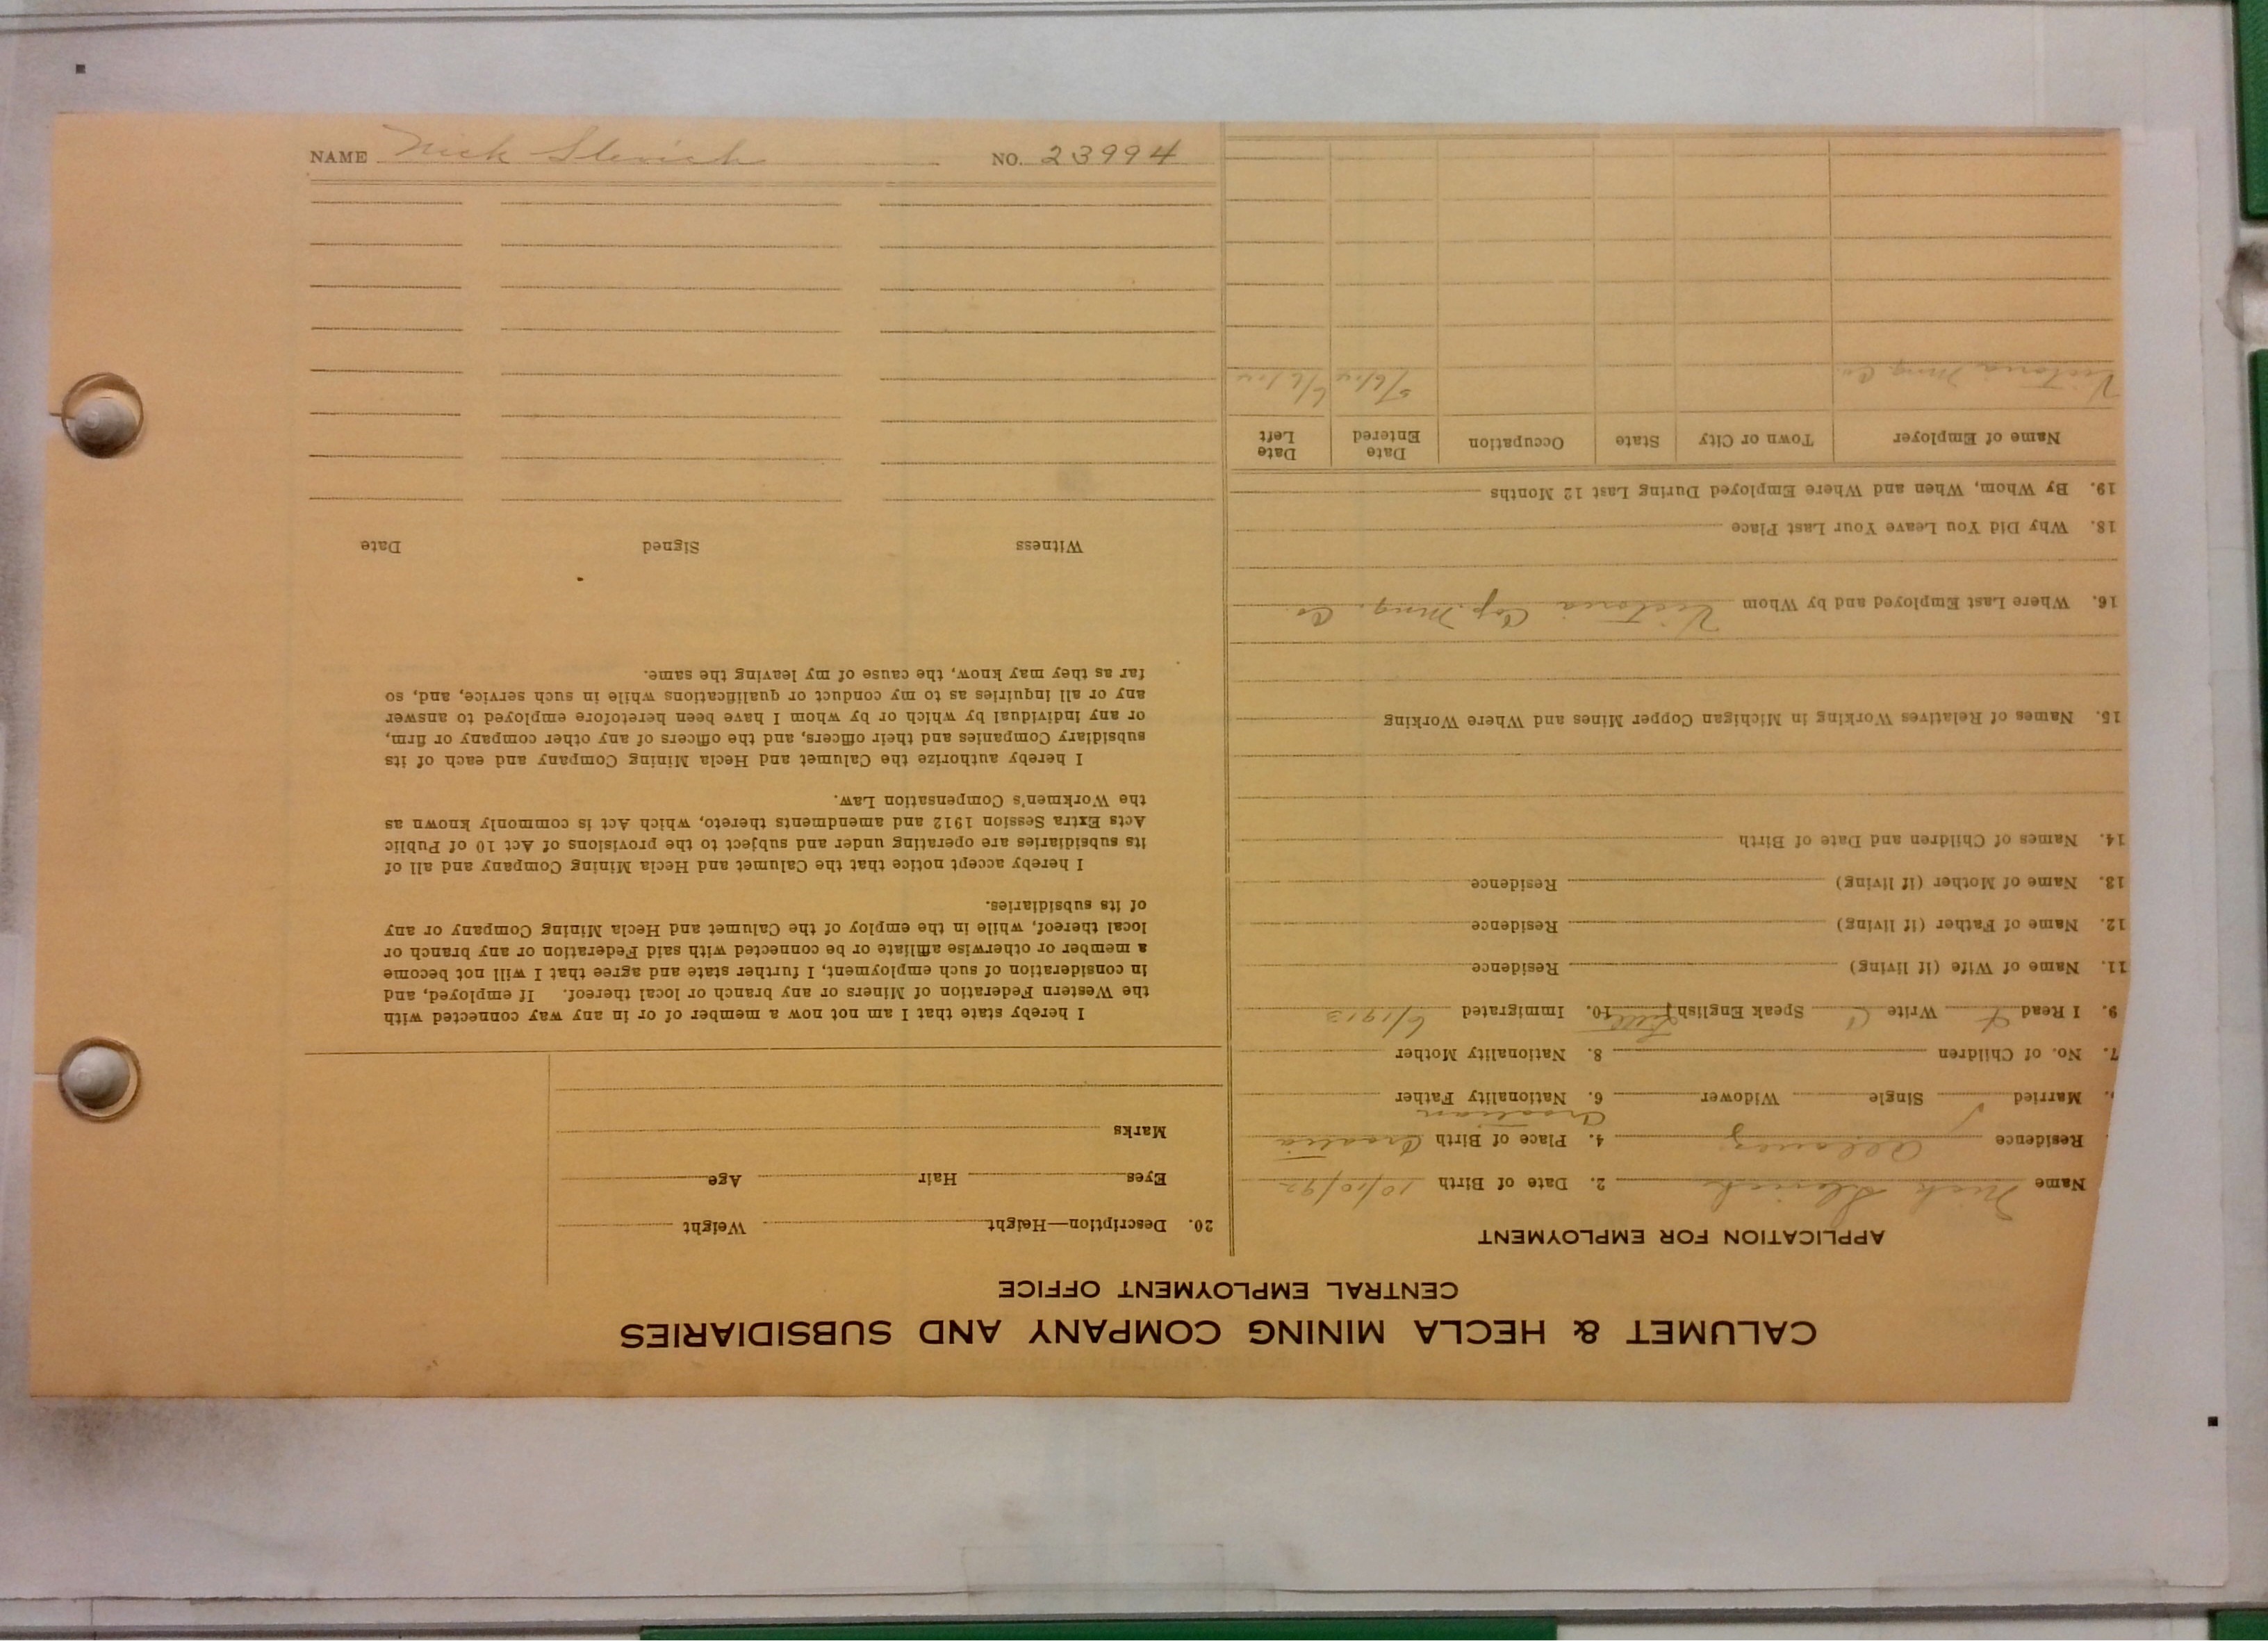 CALUMET & HECLA MINING COMPANY AND SUBSIDIARIES
CENTRAL EMPLOYMENT OFFICE
APPLICATION FOR EMPLOYMENT
Name Nick 2. Date of Birth 10/10/92
Residence Allouez 4. Place of Birth Croatia
Croatian
Married Single Widower 6. Nationality Father
7. No. of Children 8. Nationality Mother
9. I Read Write Speak English 10. Immigrated 6/1913
11. Name of Wife (if living) Residence
12. Name of Father (if living) Residence
13. Name of Mother (if living) Residence
14. Names of Children and Date of Birth
15. Names of Relatives Working in Michigan Copper Mines and Where Working
16. Where Last Employed and by Whom Victoria Cop. Mng. Co.
18. Why Did You Leave Your Last Place
19. By Whom, When and Where Employed During Last 12 Months
Name of Employer Town or City State Occupation Date Entered Date Left
Victoria Mng. Co. 5/6/14 6/6/14
20. Description—Height Weight
Eyes Hair Age
Marks
I hereby state that I am not now a member of or in any way connected with
the Western Federation of Miners or any branch or local thereof. If employed, and
in consideration of such employment, I further state and agree that I will not become
a member or otherwise affiliate or be connected with said Federation or any branch or
local thereof, while in the employ of the Calumet and Hecla Mining Company or any
of its subsidiaries.
I hereby accept notice that the Calumet and Hecla Mining Company and all of
its subsidiaries are operating under and subject to the provisions of Act 10 of Public
Acts Extra Session 1912 and amendments thereto, which Act is commonly known as
the Workmen's Compensation Law.
I hereby authorize the Calumet and Hecla Mining Company and each of its
subsidiary Companies and their officers, and the officers of any other company or firm,
or any individual by which or by whom I have been heretofore employed to answer
any or all inquiries as to my conduct or qualifications while in such service, and, so
far as they may know, the cause of my leaving the same.
Witness Signed Date
NAME Nick NO. 23994